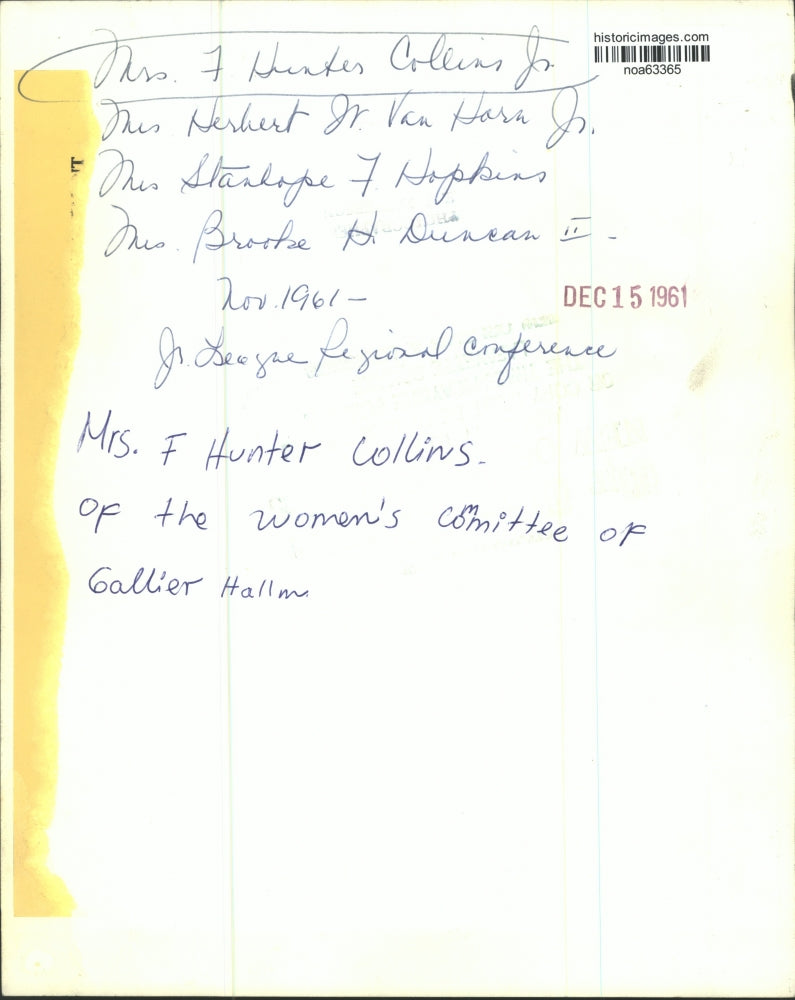 historicimages.com
noa63365
Mrs. F Hunter Collins Jr.
Mrs Herbert W. Van Horn Jr.
Mrs Stanhope F. Hopkins
Mrs. Brooke H. Duncan II -
Nov. 1961 -
DEC 15 1961
Jr. League Regional Conference
Mrs. F Hunter Collins.
OF the women's Committee OF
Gallier Hallm